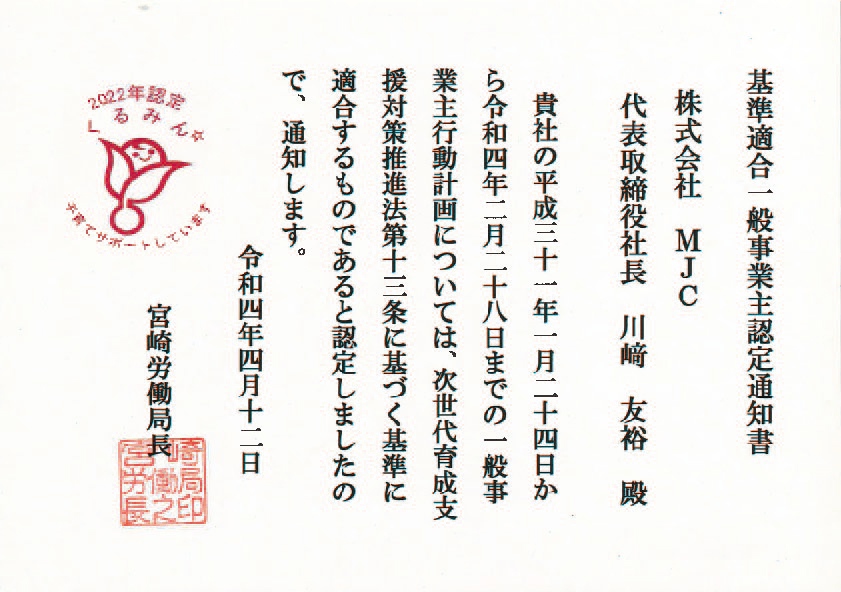 基準適合一般事業主認定通知書
株式会社 MJC
代表取締役社長 川﨑 友裕 殿
貴社の平成三十一年一月二十四日か
ら令和四年二月二十八日までの一般事
業主行動計画については、次世代育成支
援対策推進法第十三条に基づく基準に
適合するものであると認定しましたの
で、通知します。
令和四年四月十二日
宮崎労働局長
崎局印
労働之
宮労長
2022年認定
くるみん
子育てサポートしています